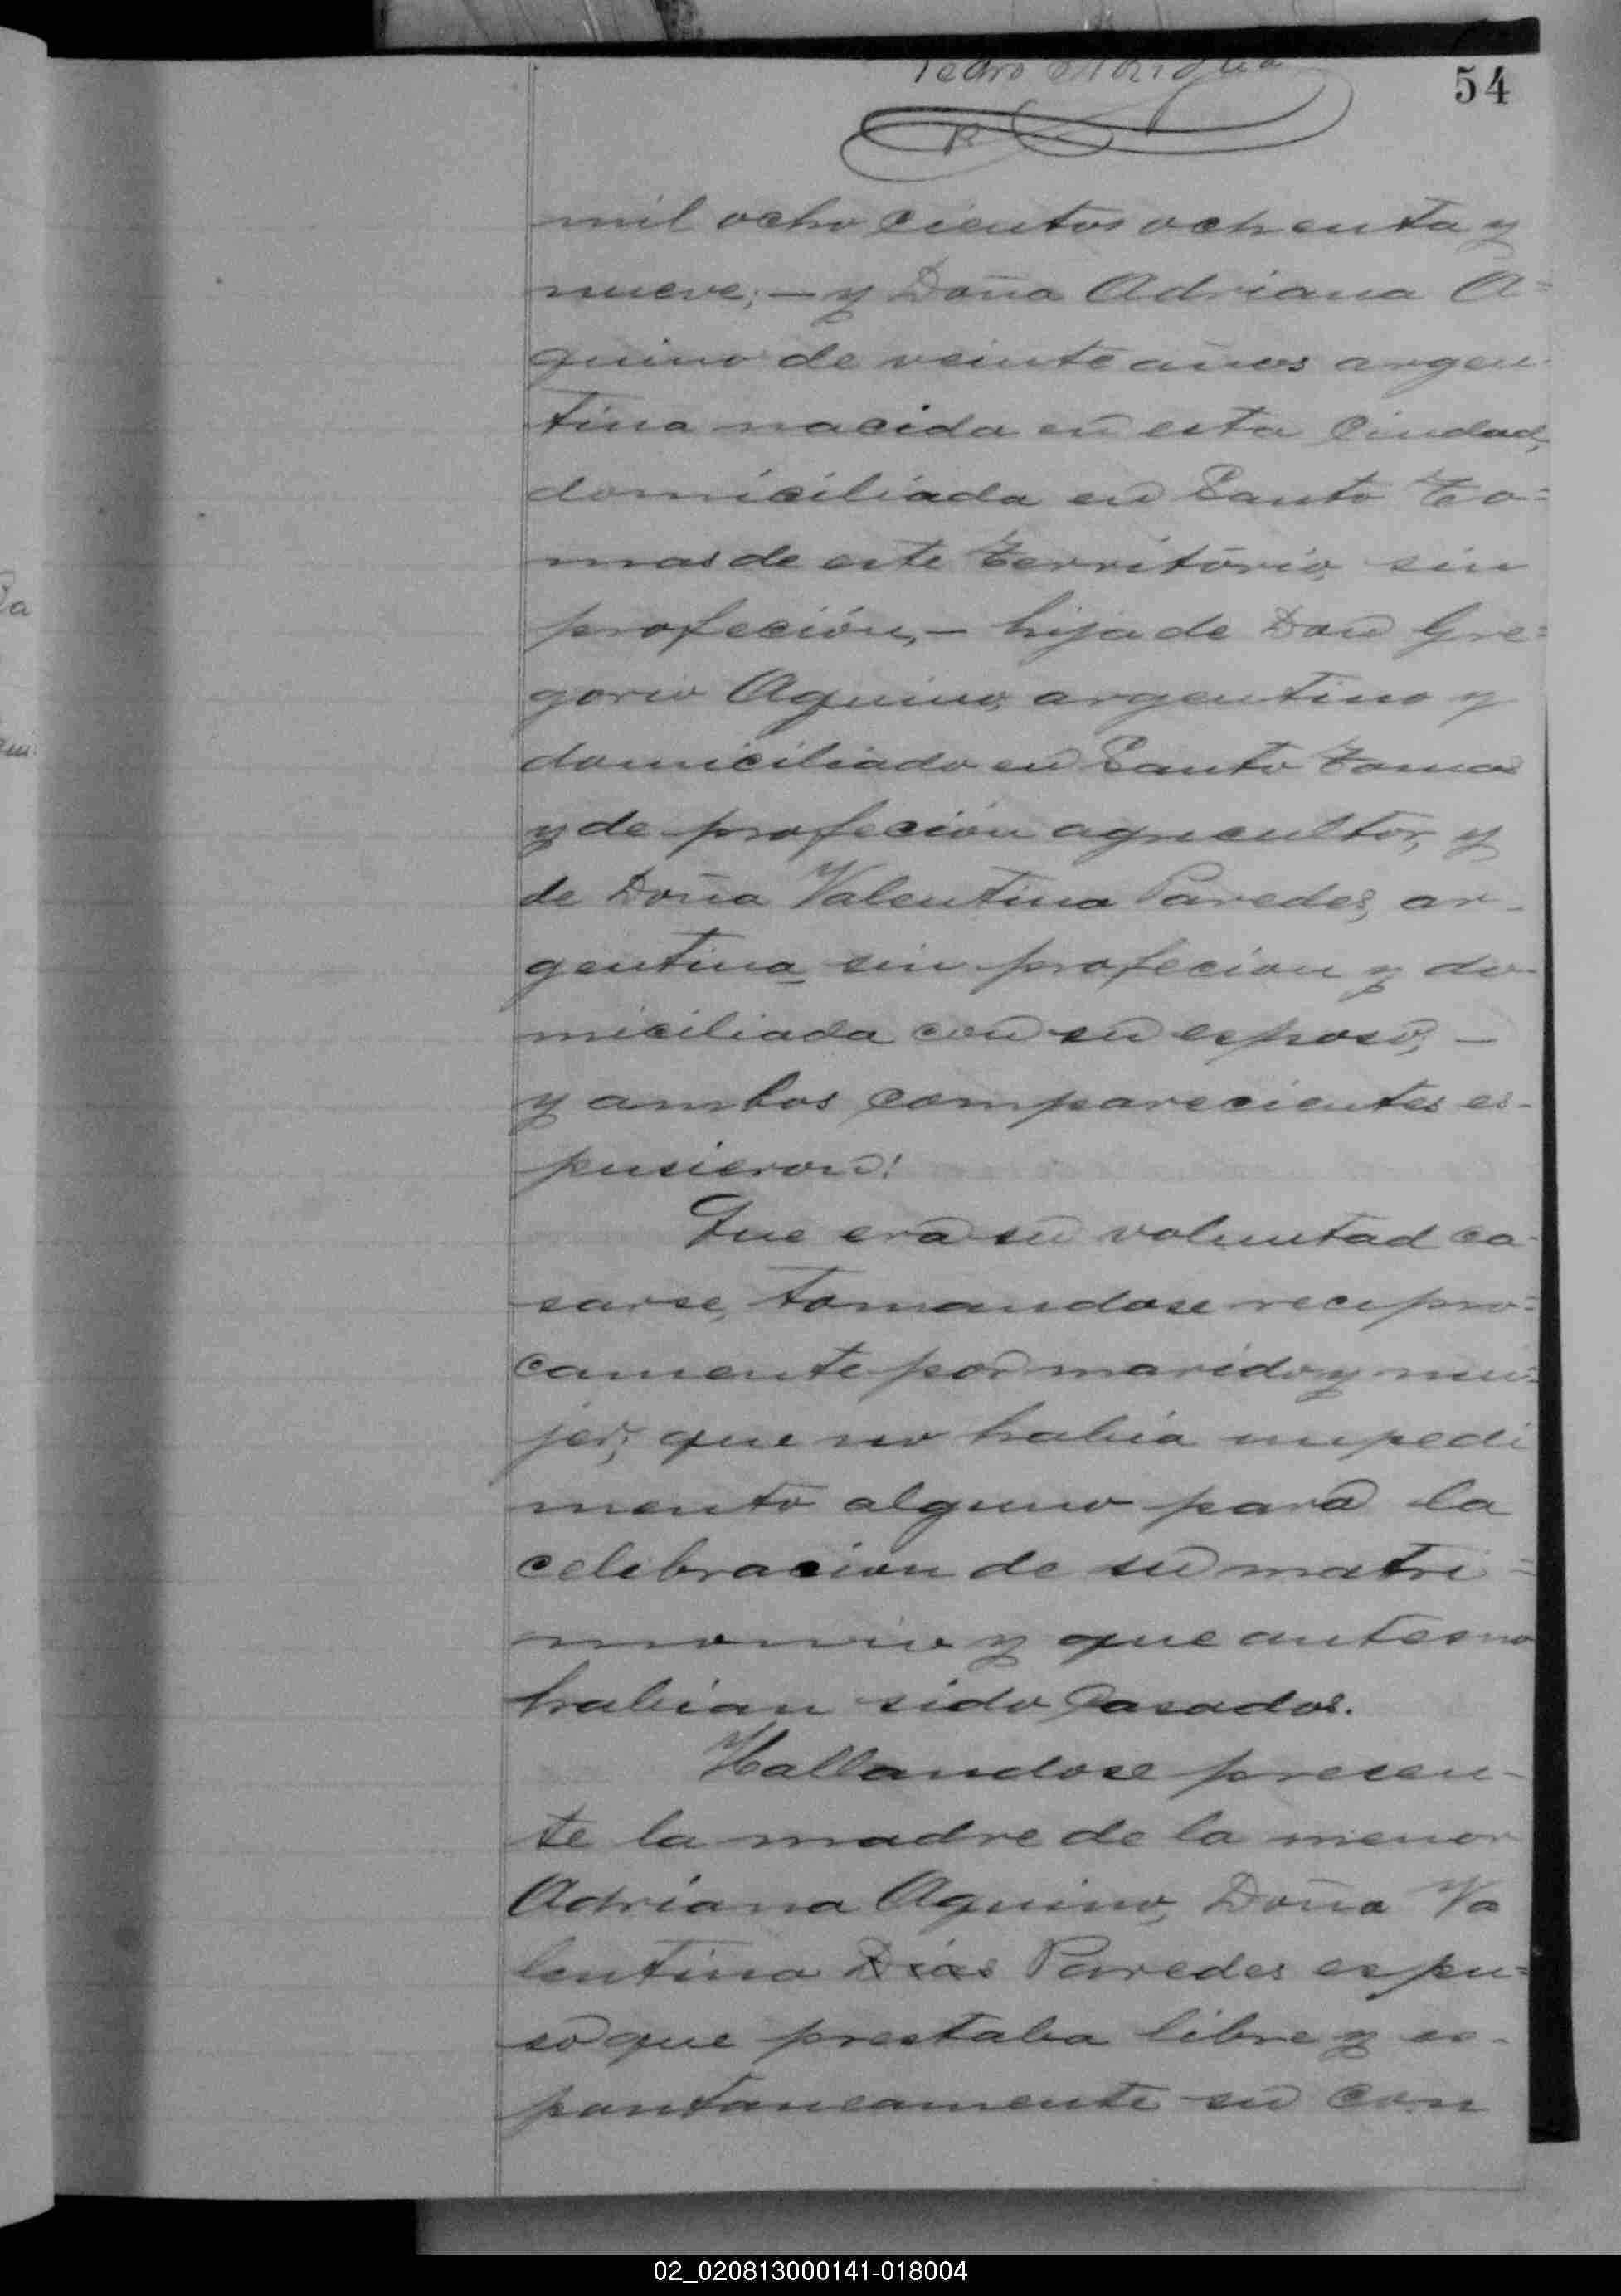 54
Pedro
mil ocho cientos ochenta y
nueve; — y Doña Adriana A=
quino de veinte años argen-
tina nacida en esta Ciudad,
domiciliada en Santo To=
mas de este Territorio, sin
profeción, — hija de Don Gre=
gorio Aquino, argentino y
domiciliado en Santo Tomas
y de profeción agricultor, y
de Doña Valentina Paredes, ar-
gentina sin profecion y do-
miciliada con su esposo, —
y ambos comparecientes es-
pusieron:
Que era su voluntad ca-
sarse, tomandose recipro=
camente por marido y mu=
jer; que no habia impedi
mento alguno para la
celebracion de su matri=
monio y que antes no
habian sido Casados.
Hallandose presen-
te la madre de la menor
Adriana Aquino, Doña Va
lentina Dias Paredes espu=
so que prestaba libre y es-
pontaneamente su con
02_020813000141-018004